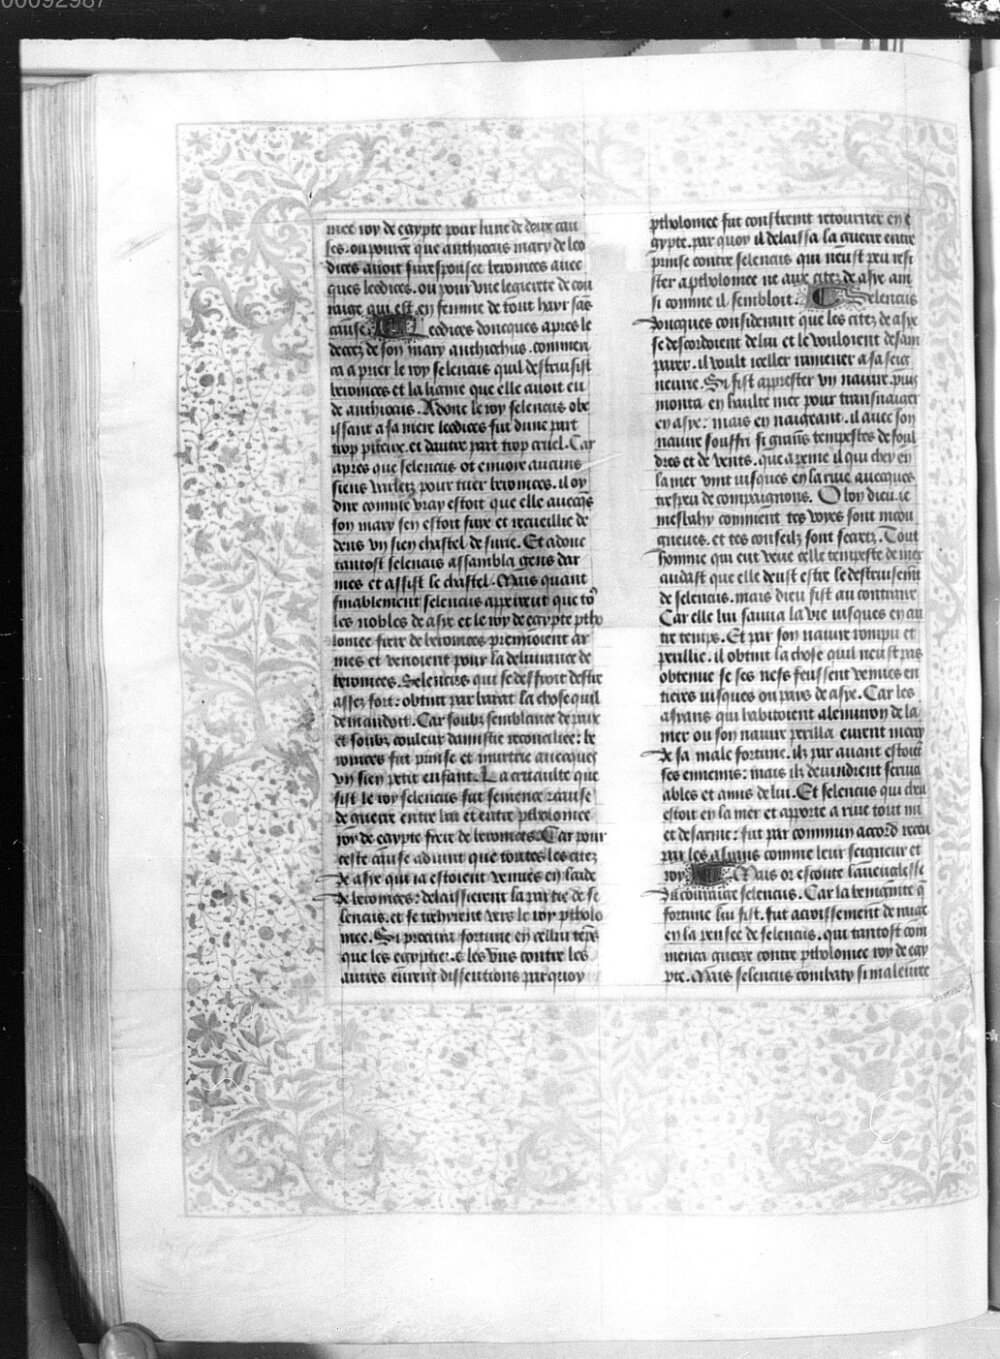 00092987
mee roy de egypte pour lune de deux cau
ses. ou pource que anthiocus mary de leo
dices auoit surespousee beronices auec
ques leodices. ou pour vne legierete de cou
raige qui est en femme de tout hayr sãs
cause. Leodices doncques apres le
decez de son mary anthiochus. commen
ca a prier le roy seleucus quil destruisist
beronices et la lignie que elle auoit eu
de anthiocus. Adonc le roy seleucus obe
issant a sa mere leodices fut dune part
trop piteux. et dautre part trop cruel. Car
apres que seleucus ot enuoie aucuns
siens varletz pour tuer beronices. il oy
dire comme vray estoit que elle auecq̃s
son mary sen estoit fuye et recueillie de
dens vn sien chastel de surie. Et adonc
tantost seleucus assambla gens dar
mes et assist le chastel. Mais quant
finablement seleucus apperceut que to9
les nobles de asye et le roy de egypte ptho
lomee frere de beronices prenoient ar
mes et venoient pour la deliurance de
beronices. Seleucus qui se deffioit destre
assez fort: obtint par barat la chose quil
demandoit. Car soubz semblance de paix
et soubz couleur damistie reconciliee: be
ronices fut prinse et murtrie auecques
vn sien petit enfant. La cruaulte que
fist le roy seleucus fut semence & cause
de guerre entre lui et entre ptholomee
roy de egypte frere de beronices. Car pour
ceste cause aduint que toutes les citez
de asye qui ia estoient venues en laide
de beronices: delaissierent la partie de se
leucus. et se trahyrent vers le roy ptholo
mee. Si procura fortune en cellui tẽps
que les egyptiẽs les vns contre les
autres eurent dissentions parquoy
ptholomee fut constreint retourner en e
gypte. par quoy il delaissa la guerre entre
prinse contre seleucus qui neust peu resi
ster a ptholomee ne aux citez de asye ain
si comme il sembloit. Seleucus
doncques considerant que les citez de asye
se descordoient de lui et le vouloient desam
parer. il voult icelles ramener a sa seig
neurie. Si fist apprester vn nauire. puis
monta en haulte mer pour transnaiger
en asye: mais en naigeant. il auec son
nauire souffri si grans tempestes de foul
dres et de vents. que a peine il qui chey en
la mer vint iusques en la riue auecques
tres peu de compaignons. O bon dieu ie
mesbahy comment tes voyes sont incou
gneues. et tes conseilz sont secretz. Tout
homme qui eut veue celle tempeste de mer
cudast que elle deust estre le destruisemt
de seleucus. mais dieu fist au contraire
Car elle lui sauua la vie iusques en au
tre temps. Et par son nauire rompu et
perillie. il obtint la chose quil neust pas
obtenue se ses nefs feussent venues en
tieres iusques ou pays de asye. Car les
asyans qui habitoient alenuiron de la
mer ou son nauire perilla eurent mercy
de sa male fortune. ilz par auant estoiẽt
ses ennemis: mais ilz deuindrent seruia
ables et amis de lui. Et seleucus qui cheu
estoit en la mer et apporte a riue tout nu
et desarme: fut par commun accord receu
par les asyans comme leur seigneur et
roy Mais or escoute laueuglesse
du couraige seleucus. Car la benignite q̃
fortune lui fist. fut acroissement de raige
en la pensee de seleucus. qui tantost com
menca guerre contre ptholomee roy de egy
pte. Mais seleucus combaty si maleure